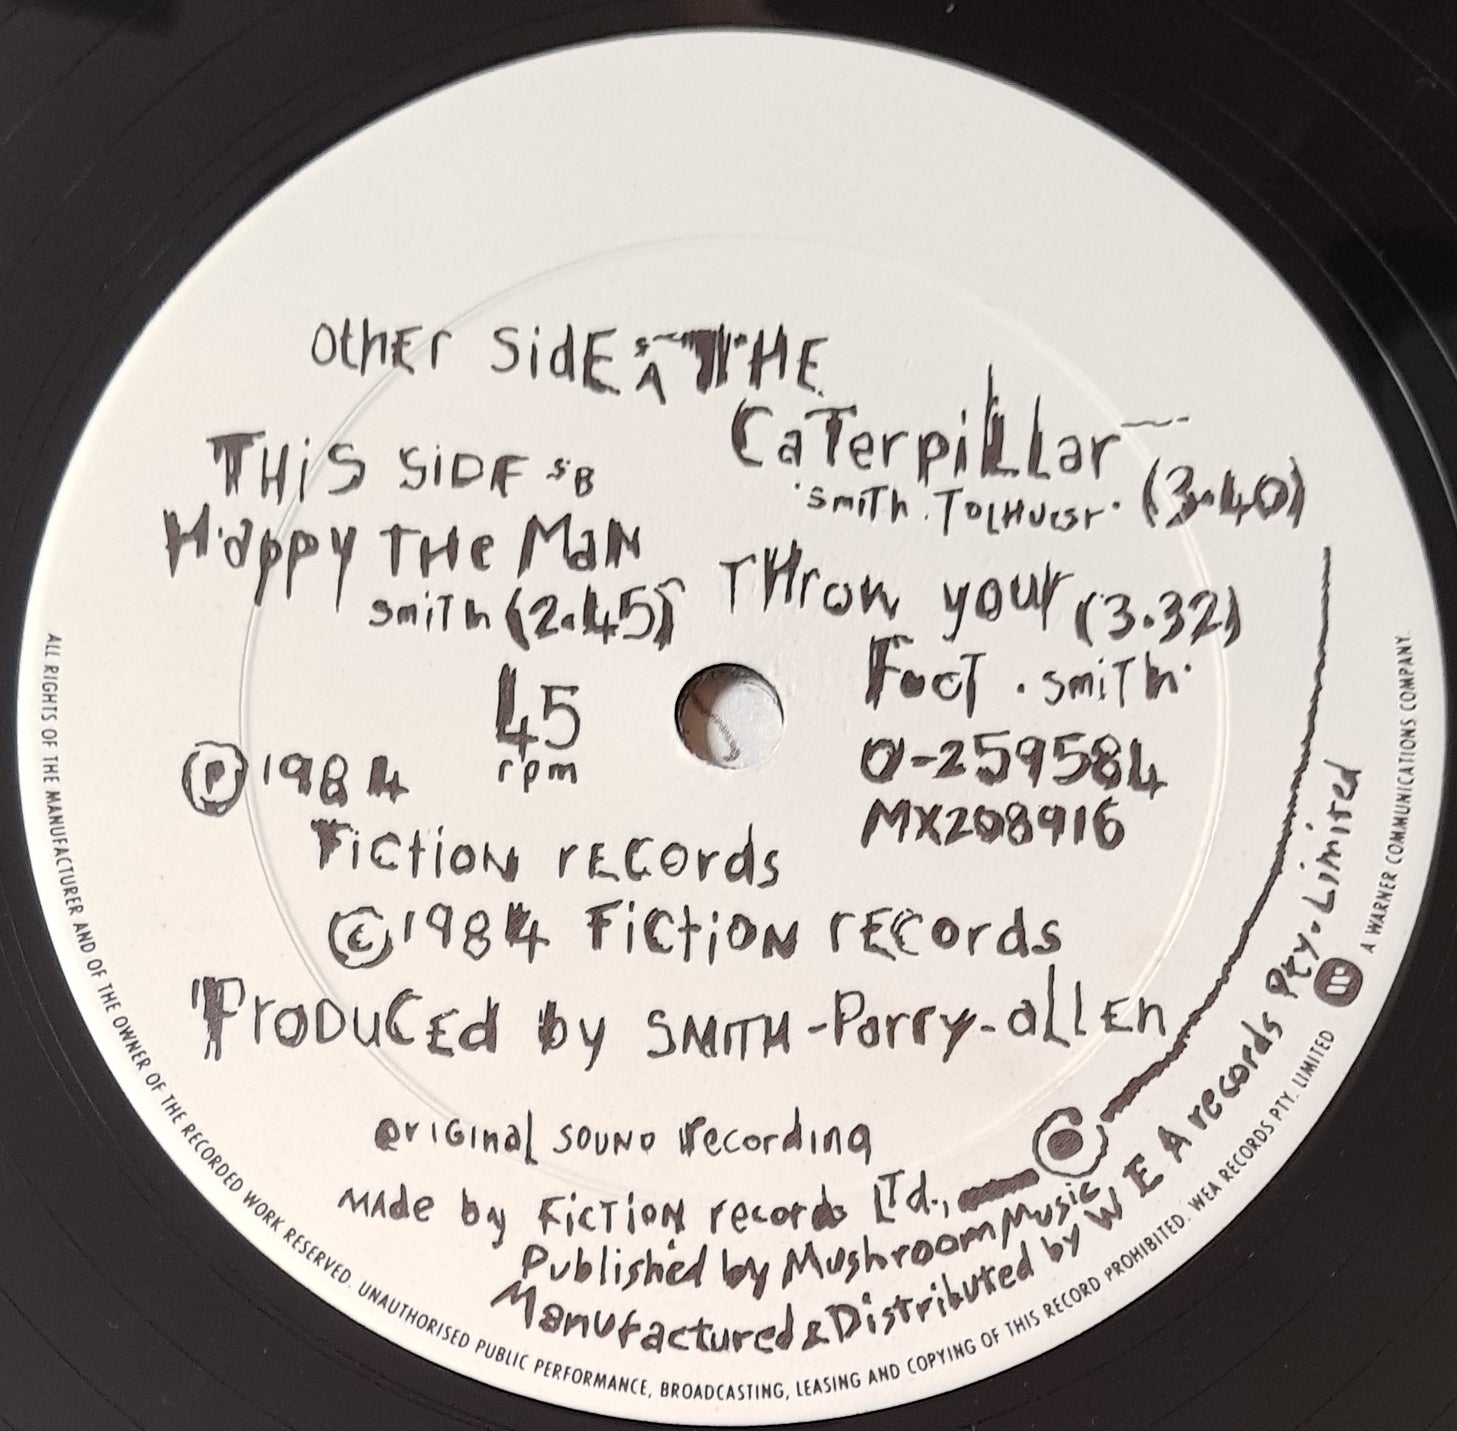 OthEr SidE 'SA THE
CaTerpiLLar
'SmiTh. TOLHUrST' (3.40)
THiS SiDE 'SB
Happy THe MaN
SmiTh (2.45)
THrow your (3.32)
FooT . SmiTh.
45
rpm
0-259584
MX208916
Ⓟ 1984
FiCtioN rECords
© 1984 FiCtiON rECords
ProDuCEd by SMITH-Parry-allEn
OriGinal SOUND recording
MAde by FiCTiON records LTd.,
Published by Mushroom Music
Manufactured & Distributed by W E A records Pty. Limited
ALL RIGHTS OF THE MANUFACTURER AND OF THE OWNER OF THE RECORDED WORK RESERVED. UNAUTHORISED PUBLIC PERFORMANCE, BROADCASTING, LEASING AND COPYING OF THIS RECORD PROHIBITED. WEA RECORDS PTY. LIMITED A WARNER COMMUNICATIONS COMPANY.